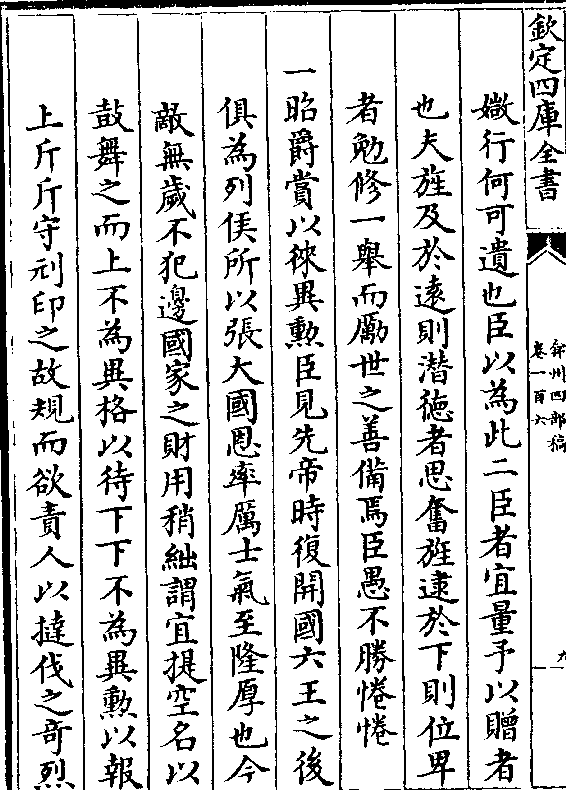 欽定四庫全書
弇州四部稿
卷一百六
九
媺行何可遺也臣以為此二臣者宜量予以贈者
也夫旌及於遠則潛徳者思奮旌逮於下則位卑
者勉修一舉而厲世之善備焉臣愚不勝惓惓
一昭爵賞以徠異勲臣見先帝時復開國六王之後
俱為列侯所以張大國恩率厲士氣至隆厚也今
敵無歲不犯邊國家之財用稍絀謂宜提空名以
鼓舞之而上不為異格以待下下不為異勲以報
上斤斤守刓印之故規而欲責人以撻伐之竒烈